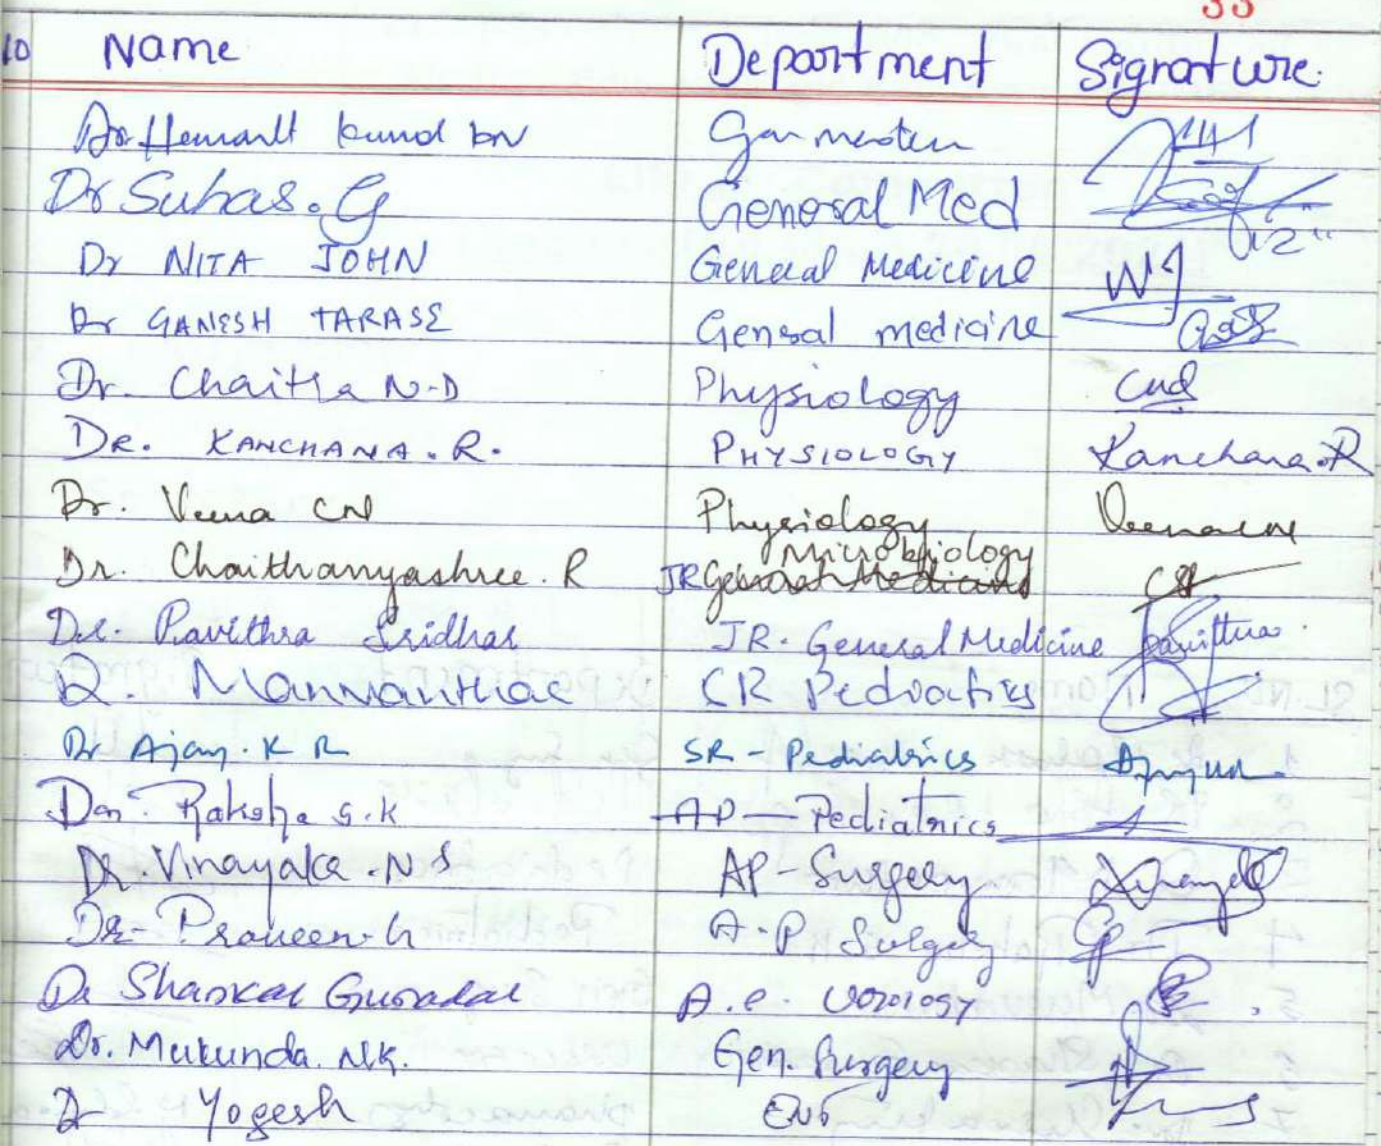 33
Name Department Signature
Dr Hemant
Dr Suhas. G General Med
Dr NITA JOHN General Medicine NJ
Dr GANESH TARASE General medicine
Dr. Chaitra N.D Physiology
DR. KANCHANA. R. PHYSIOLOGY Kanchana.R
Dr. Veena CN Physiology Veena CN
Microbiology
Dr. Chaithanyashree. R JR General Medicine
Dr. Pavithra Sridhar JR. General Medicine Pavithra
Pediatrics
Dr Ajay. K R SR - Pediatrics
Dr. Raksha S.K AP - Pediatrics
Dr. Vinayaka. N S AP - Surgery
Dr. Praveen. G A.P Surgery
Dr Shankar Urology
Dr. Mukunda. NK. Gen. Surgery
Dr Yogesh ENT